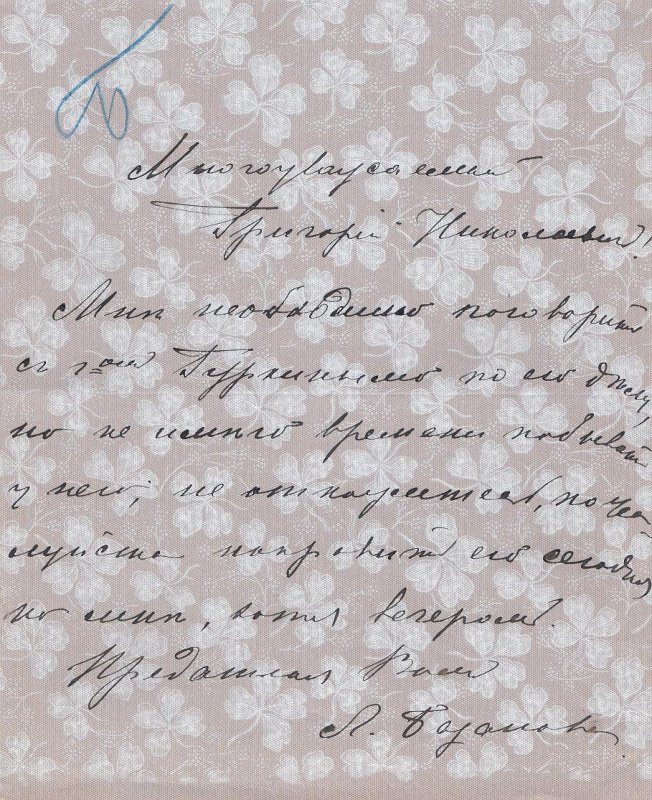 Многоуважаемый
Григорій Николаевич!
Мнѣ необходимо поговорить
съ г-омъ по его дѣлу,
но не имѣю времени побывать
у него, не откажитесь, пожа
луйста направить его сегодня
ко мнѣ, хотя вечеромъ.
Преданная Вамъ
Л. Базанова